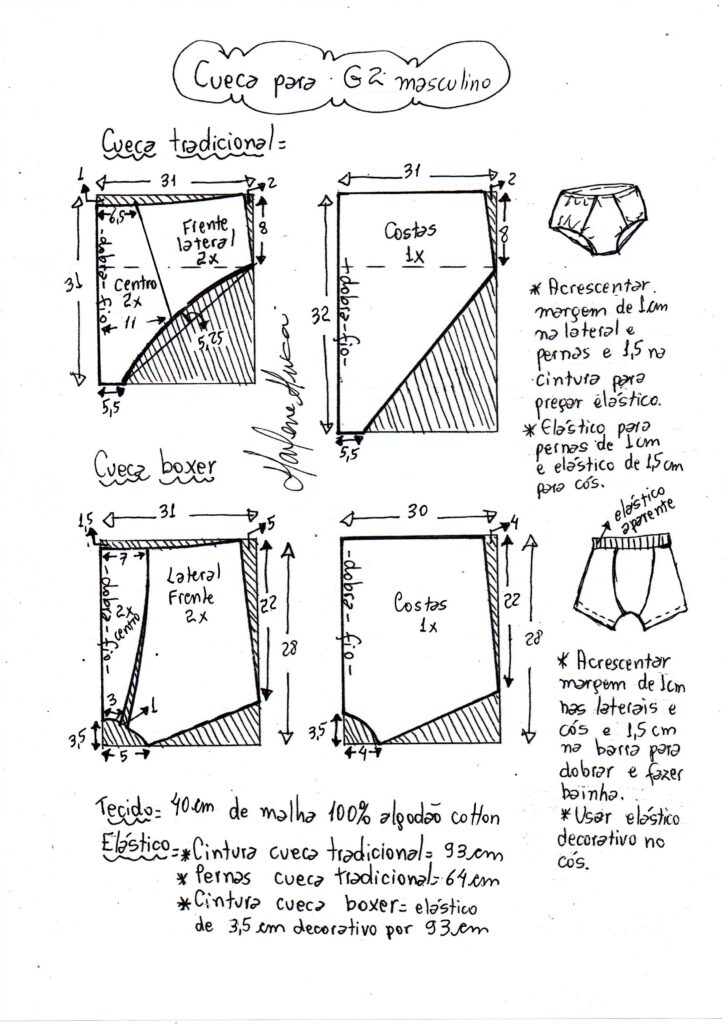 Cueca para G2 masculino
Cueca tradicional=
31
1
2
6,5
31
8
Frente
lateral
2x
-dobra-fio-
Centro
2x
11
5,25
5,5
31
2
Costas
1x
8
32
+dobra-fio-
5,5
Marlene Mukai
* Acrescentar
margem de 1cm
na lateral e
pernas e 1,5 na
cintura para
pregar elástico.
* Elástico para
pernas de 1cm
e elástico de 1,5cm
para cós.
Cueca boxer
31
1,5
5
7
Lateral
Frente
2x
-dobra-fio-
2x
centro
22
28
3
1
3,5
5
30
4
-dobra-fio-
Costas
1x
22
28
3,5
4
elástico
aparente
* Acrescentar
margem de 1cm
nas laterais e
cós e 1,5cm
na barra para
dobrar e fazer
bainha.
* Usar elástico
decorativo no
cós.
Tecido= 40cm de malha 100% algodão cotton
Elástico=*Cintura cueca tradicional= 93cm
* Pernas cueca tradicional=64cm
*Cintura cueca boxer= elástico
de 3,5cm decorativo por 93cm